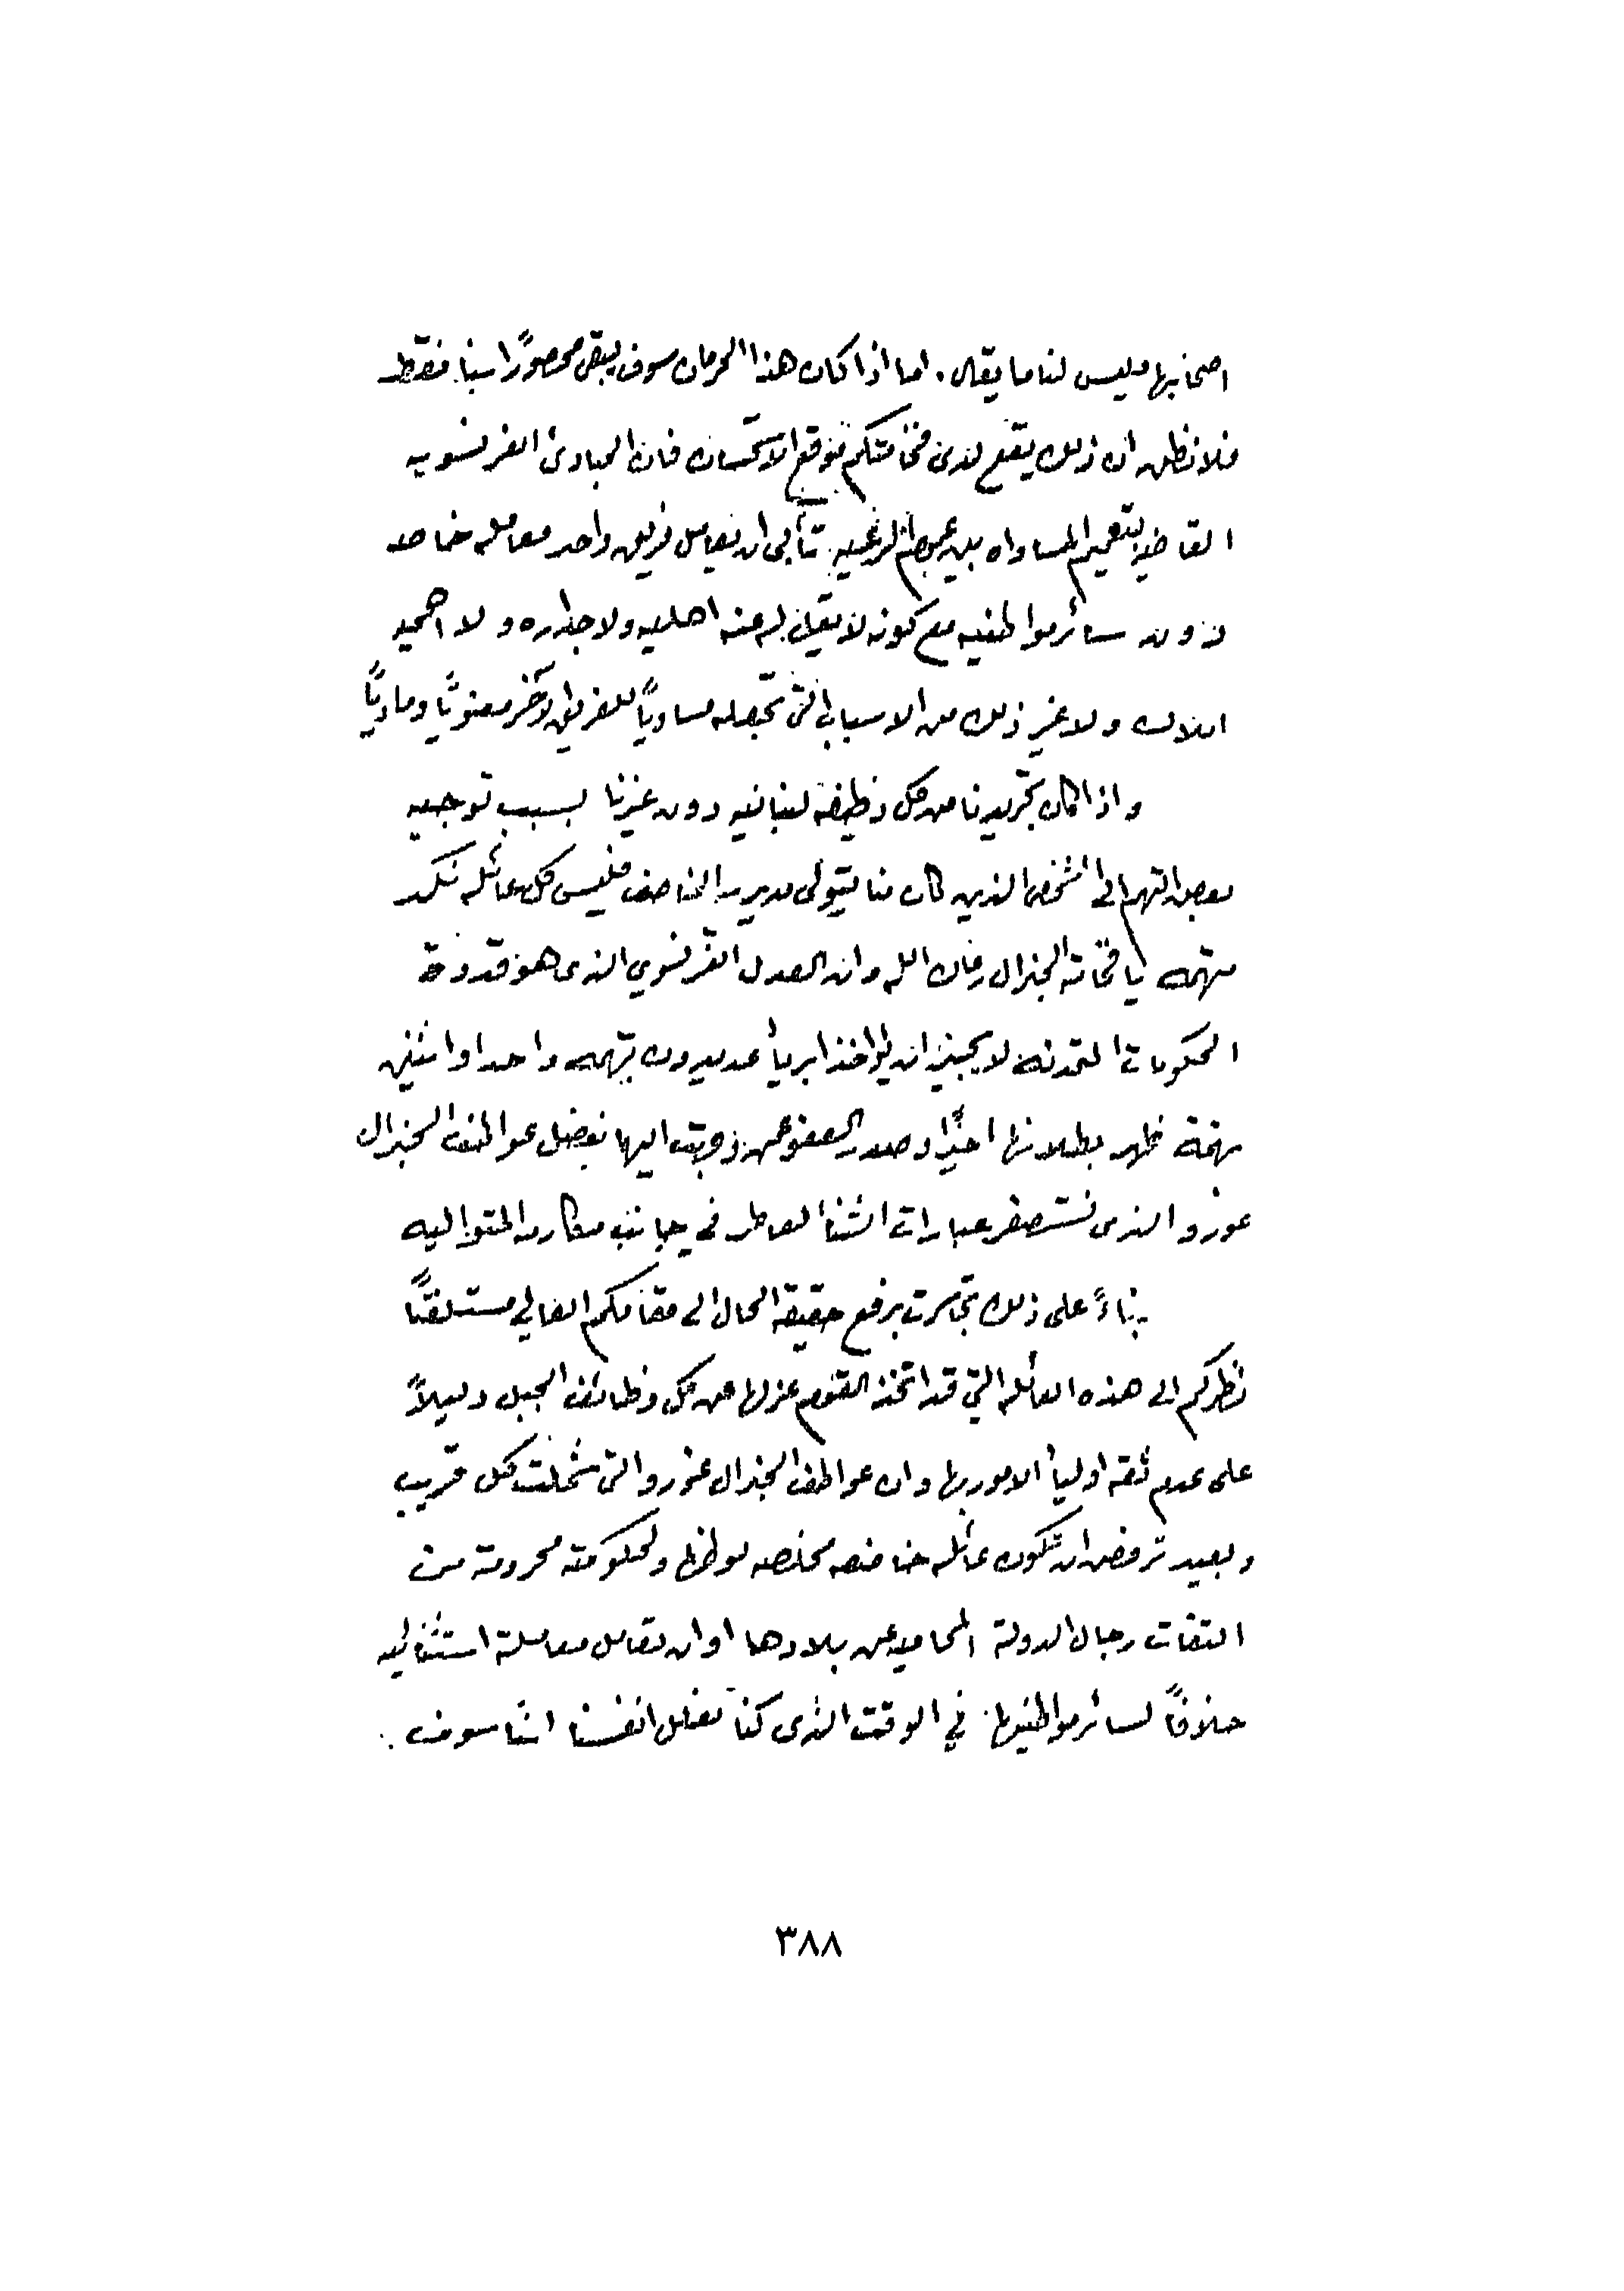 اصحابها وليس لنا ما يقال. اما اذا كان هذا الحرمان سوف يبقى محصورًا بنا فقط
فلا نظن ان ذلك يقع لدى فخامتكم موقع الاستحسان فان المبادئ الفرنسويه
القاضيه بتعميم المساواه بين جميع الرعيه تأبى ان يعامل فريق واحد معامله خاصه
دون سائر مواطنيه مع كونه لا يقل عنه اهليه ولا جداره ولا اهميه
املاك ولا غير ذلك من الاسباب التي تجعله مساويًا للفريق الآخر معنويًا وماديًا
واذا كان تجريدنا من كل وظيفه لبنانيه دون غيرنا بسبب توجيه
بعض التهم الى الشخص الذي كان منا يتولى مديرية المناصف فليس كل عائله تكدر
متهمه يا فخامة الجنرال رعاك الله وان العدل الفرنسوي الذي هو قدوة
الحكومات المتمدنه لا يجيز ان يؤاخذ ابرياء عديدون بتهمه واحد او اثنين
تهمة ظهر بطلانها اخيرًا وصدر العفو عمن وجهت اليهم بفضل عواطف الجنرال
غورو الذي نستصغر عبارات الثنا العاطر في جانب مكارمه المتواليه
بناءً على ذلك تجاسرت برفع حقيقة الحال الى مقامكم العالي مستلفتًا
نظركم الى هذه العائله التي قد اتخذ القوم عزلها عن كل وظائف الجبل دليلاً
على عدم ثقه اولياء الامور بها وان عواطف الجنرال غورو التي شملت كل قريب
وبعيد ترفض ان تكون عائله خاضعه مخلصه لوطنها ولحكومته محرومة من
التفات رجال الدولة المحاميه عن بلادها او ان تعامل معاملة استثنائيه
خلافًا لسائر مواطنيها في الوقت الذي كنا نعلل انفسنا اننا سوف
٣٨٨